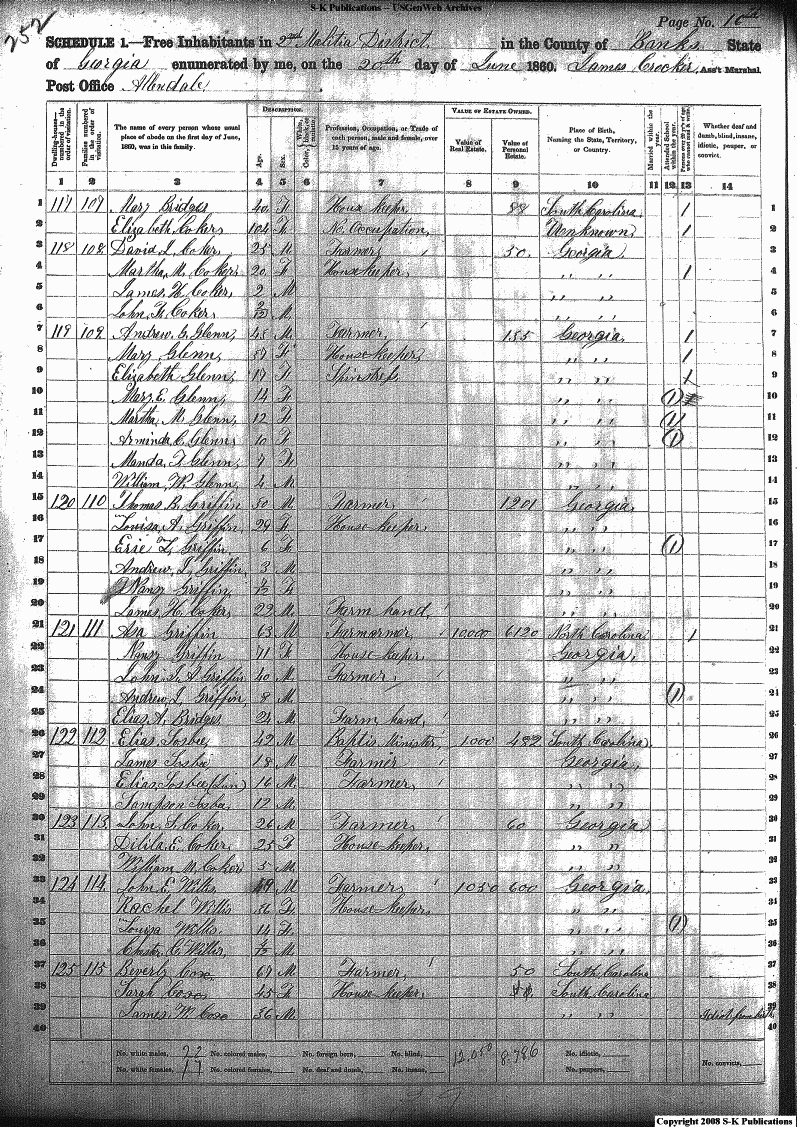 S-K Publications – USGenWeb Archives
252
Page No. 16
SCHEDULE 1.—Free Inhabitants in 2nd Malitia District in the County of Banks State
of Georgia enumerated by me, on the 20th day of June 1860. James Crocker, Ass't Marshal.
Post Office Allendale
Dwelling-houses—numbered in the order of visitation. Families numbered in the order of visitation. The name of every person whose usual place of abode on the first day of June, 1860, was in this family. DESCRIPTION. Age. Sex. Color, White, black, or mulatto. Profession, Occupation, or Trade of each person, male and female, over 15 years of age. VALUE OF ESTATE OWNED. Value of Real Estate. Value of Personal Estate. Place of Birth, Naming the State, Territory, or Country. Married within the year. Attended School within the year. Persons over 20 y'rs of age who cannot read & write. Whether deaf and dumb, blind, insane, idiotic, pauper, or convict.
1 2 3 4 5 6 7 8 9 10 11 12 13 14
1 117 107 Mary Bridges 40 F House keeper 88 South Carolina 1 1
2 Elizabeth Cokers 104 F No Occupation, Unknown, 1 2
3 118 108 David L. Coker, 25 M Farmer, 50. Georgia 3
4 Martha M. Cokers 20 F House keeper, " " 1 4
5 James H. Coker, 2 M " " 5
6 John F. Coker, M. " " 6
7 119 109 Andrew G. Glenn, 45 M. Farmer, 155 Georgia, 1 7
8 Mary Glenn, 37 F House keeper, " " 1 8
9 Elizabeth Glenn, 17 F Spinstress " " 9
10 Mary E. Glenn, 14 F " " 1 10
11 Martha, M. Glenn, 12 F. " " 1 11
12 Arminda C. Glenn, 10 F " " 1 12
13 Manda, F. Glenn, 7 F. " " 13
14 William, W. Glenn, 4 M. " " 14
15 120 110 Thomas B. Griffin 50 M. Farmer 1201 Georgia, 15
16 Louisa, A. Griffin 29 F House-keeper, " " 16
17 F. Griffin, 6 F. " " 1 17
18 Andrew, J. Griffin, 3 M " " 18
19 Nansy Griffin, F. " " 19
20 James, H. Coker, 29 M. Farm hand, " " 20
21 121 111 Asa Griffin 63 M Farmormer, 10,000 6120 North Carolina 1 21
22 Nansy Griffin 71 F House-keeper Georgia, 22
23 John Griffin 40 M. Farmer, " " 23
24 Andrew J. Griffin 8 M. " " 1 24
25 Elias, A. Bridges, 24 M. Farm hand, " " 25
26 122 112 Elias, Sosbee, 42 M Baptis Minister, 1000 482 South Carolina, 26
27 James Sosbe 18 M Farmer Georgia, 27
28 Elias, Sosbee (Jun) 16 M Farmer, " " 28
29 Sampson Sosba, 12 M. " " 29
30 123 113 John, S. Coker, 26 M Farmer 60 Georgia 30
31 Dilila, E. Coker, 25 F House-keeper, " " 31
32 William M. Coker 5 M " " 32
33 124 114 John, E. Willis, M Farmer, 1050 600 Georgia, 33
34 Rachel Willis 36 F. House-keeper, " " 34
35 Louisa Willis, 14 F. " " 1 35
36 Chester, C. Willis, M. " " 36
37 125 115 Beverly Coxe 69 M. Farmer, 50 South Carolina 37
38 Sarah Coxe 45 F House keeper, South Carolina 38
39 James M. Coxe 36 M. " " Idiot from birth 39
40 40
No. white males, 22 No. colored males, No. foreign born, No. blind, 12,050 8,786 No. idiotic, No. convicts,
No. white females, 17 No. colored females, No. deaf and dumb, No. insane, No. paupers,
Copyright 2008 S-K Publications